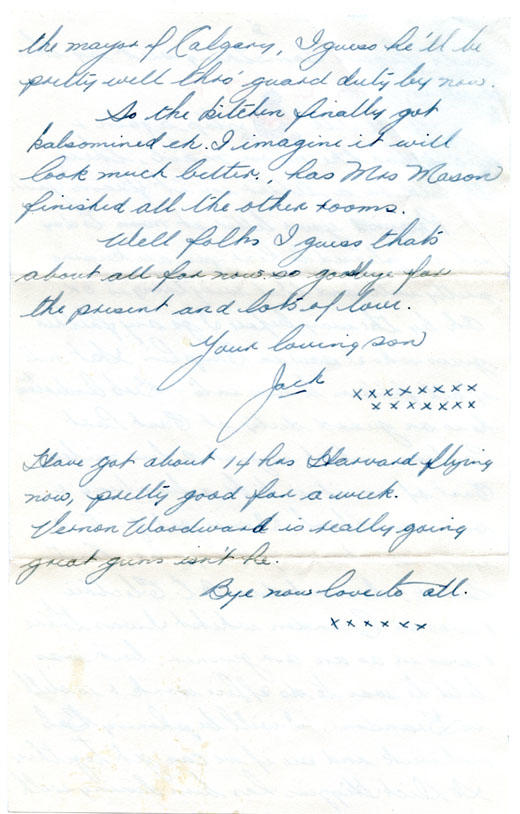 the mayor of Calgary, I guess he'll be
pretty well thro' guard duty by now.
So the kitchen finally got
kalsomined eh. I imagine it will
look much better., has Mrs Mason
finished all the other rooms.
Well folks I guess that's
about all for now so goodbye for
the present and lots of love.
Your loving son
Jack xxxxxxxx
xxxxxxx
Have got about 14 hrs Harvard flying
now, pretty good for a week.
Vernon Woodward is really going
great guns isn't he.
Bye now love to all.
xxxxxx